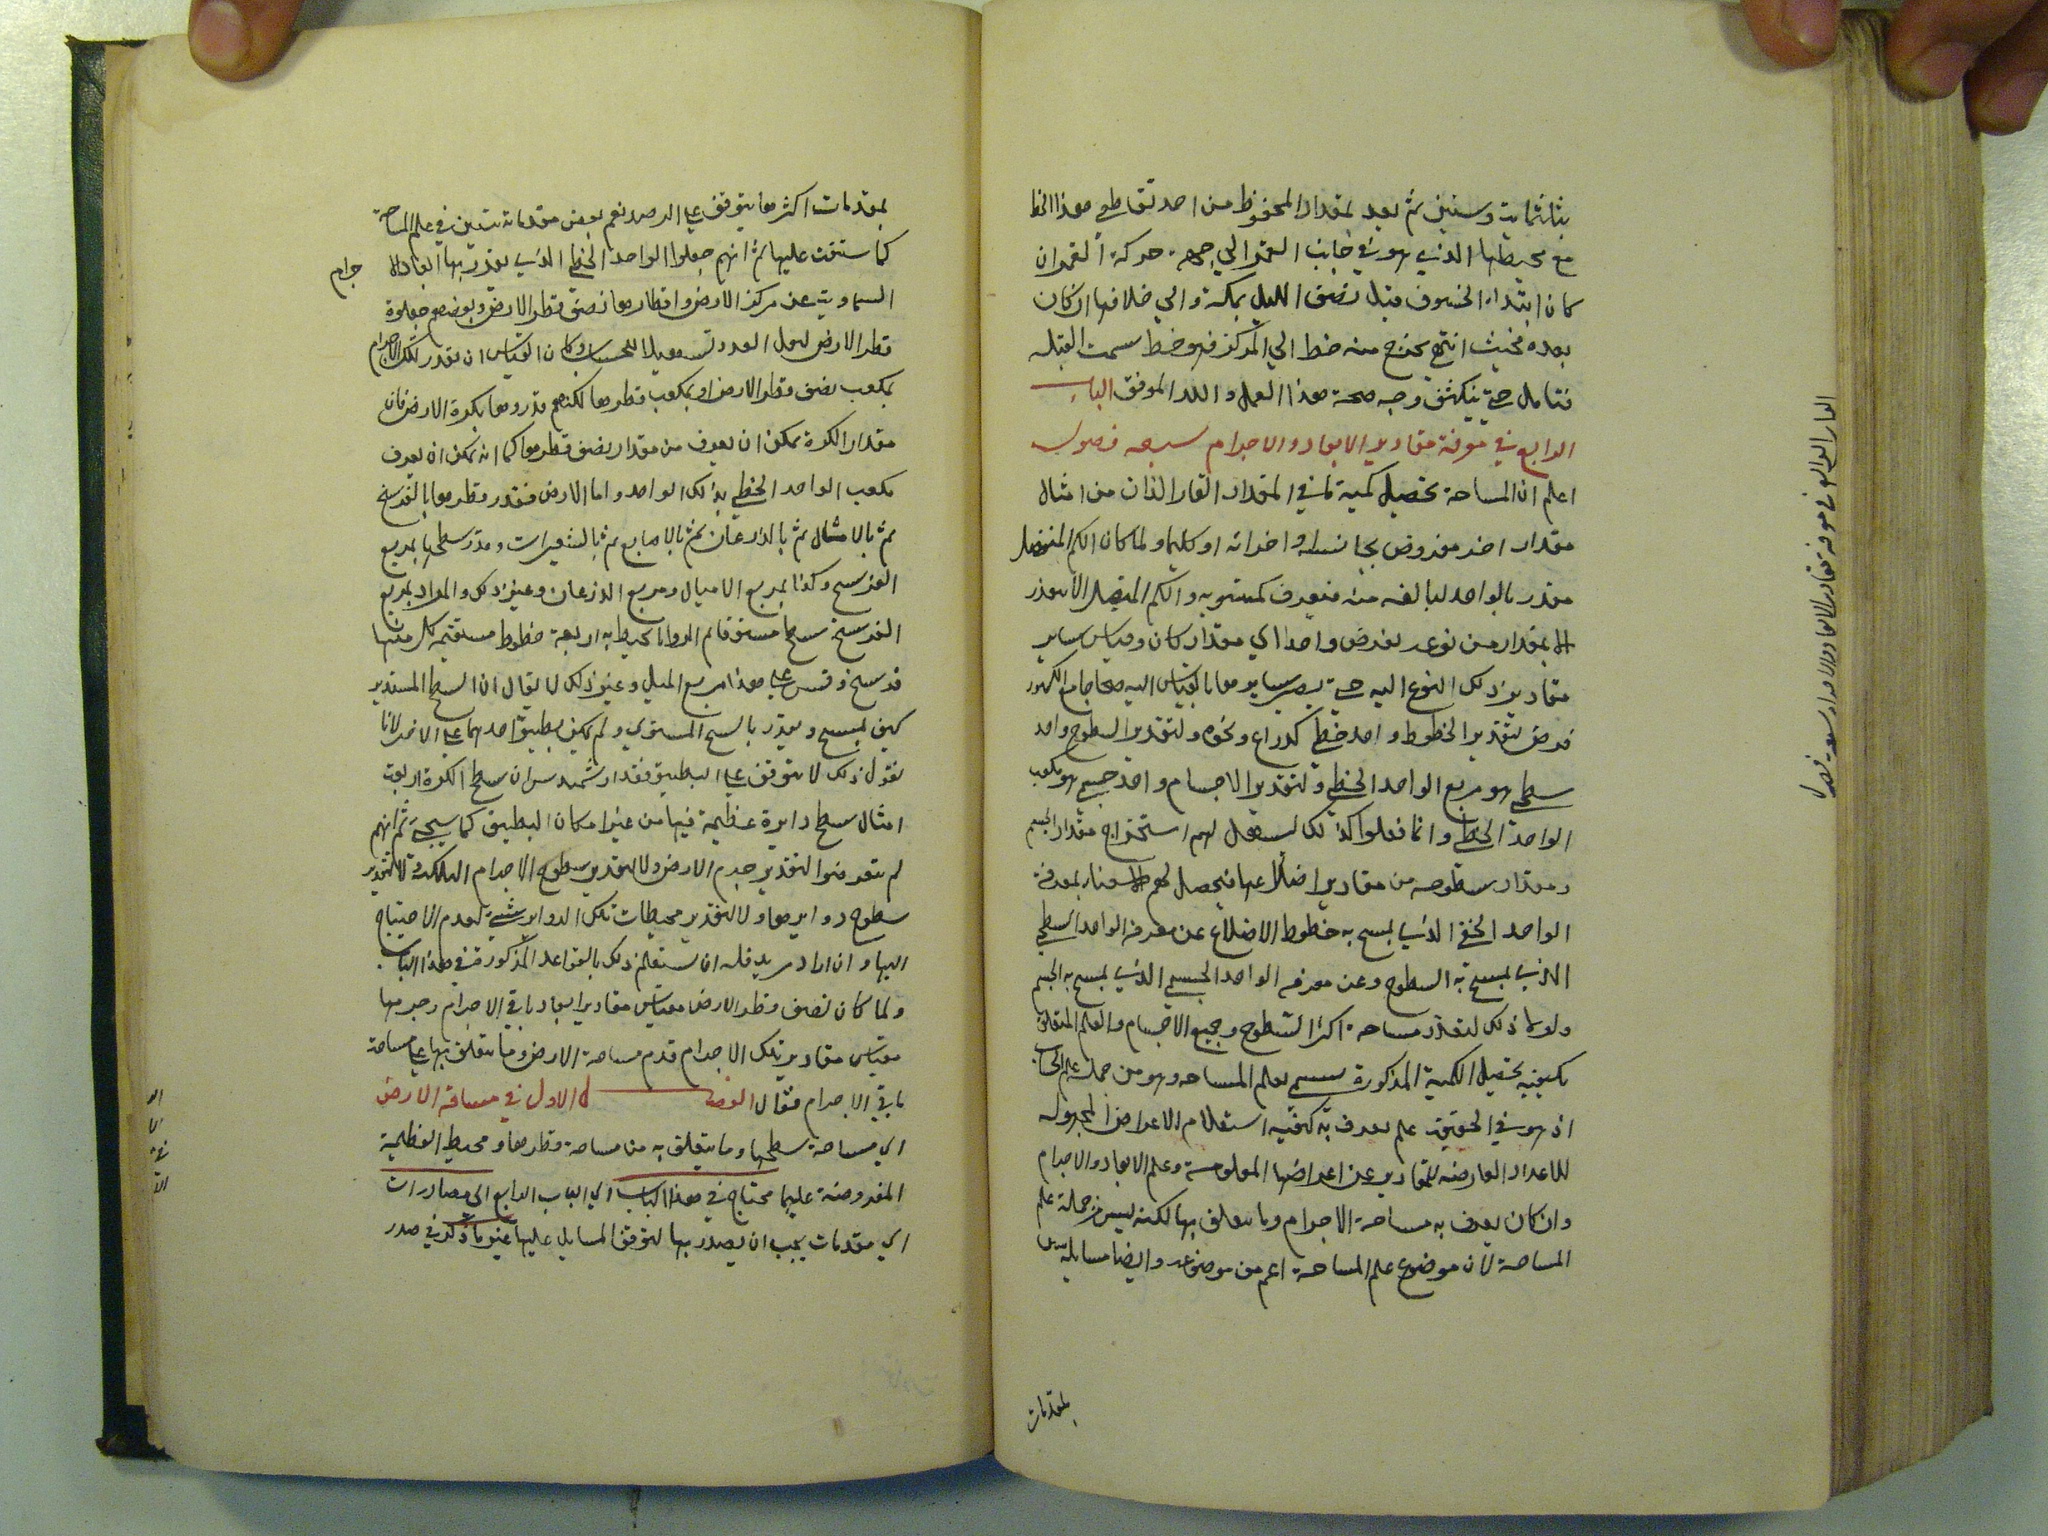 بثلثماية وستين ثم بعد بمقدار المحفوظ من احد تقاطعي هذا الخط
مع محيطها الذي هو في جانب القمر الي جهة حركة القمر ان
كان ابتداء الخسوف قبل نصف الليل بمكة والي خلافها ان كان
بعده فحيث انتهي يخرج منه خط الي المركز فهو خط سمت القبلة
فتامل حتي ينكشف وجه صحة هذا العمل والله الموفق الباب
الرابع في معرفة مقادير الابعاد والاجرام سبعه فصول
اعلم ان المساحة تحصيل كمية ما في المقدار القار الذات من امثال
مقدار اخر مفروض يجانسه واجزائه او كليهما ولما كان الكم المنفصل
مقدر بالواحد لتالفه منه فيعرف كميته به والكم المتصل لا يقدر
الا بمقدار من نوعه يفرض واحدا اي مقدار كان وقياس ساير
مقادير ذلك النوع اليه حتي يصير سايرها بالقياس اليه صحاحا مع الكسور
فرض لتقدير الخطوط واحد خطي كذراع ونحوه ولتقدير السطوح واحد
سطحي هو مربع الواحد الخطي ولتقدير الاجسام واحد جسمي هو مكعب
الواحد الخطي وانما فعلوا كذلك ليسهل لهم استخراج مقدار الجسم
ومقدار سطوحه من مقادير اضلاعها فيحصل لهم استغناء بمعرفة
الواحد الخطي الذي يمسح به خطوط الاضلاع عن معرفة الواحد السطحي
الذي يمسح به السطوح وعن معرفة الواحد الجسمي الذي يمسح به الجسم
ولولا ذلك لتعذر مساحة اكثر السطوح وجميع الاجسام والعلم المتعلق
بكيفية تحصيل الكمية المذكورة يسمي بعلم المساحه وهو من جملة علم الحساب
اذ هو في الحقيقة علم يعرف به كيفية استعلام الاعراض المجهولة
للاعداد العارضة للمقادير عن اعراضها المعلومة وعلم الابعاد والاجرام
وان كان يعرف به مساحة الاجرام وما يتعلق بها لكنه ليس من جملة علم
المساحة لان موضوع علم المساحة اعم من موضوعه وايضا مسايله
بمقدمات
الباب الرابع في معرفة مقادير الابعاد والاجرام سبعة فصول
بمقدمات اكثرها يتوقف علي الرصد نعم بعض مقدماته يتبين في علم المساحة
كما ستقف عليها ثم انهم جعلوا الواحد الخطي الذي يقدر بها ابعاد الا
جرام
السماوية عن مركز الارض واقطارها نصف قطر الارض وبعضهم جعلوه
قطر الارض ليقل العدد تسهيلا للحساب وكان القياس ان يقدر تلك الاجرام
بمكعب نصف قطر الارض او بمكعب قطرها لكنهم قدروها بكرة الارض فان
مقدار الكرة يمكن ان يعرف من مقدار نصف قطرها كما انه يمكن ان يعرف
مكعب الواحد الخطي بذلك الواحد واما الارض فقدر قطرها بالفرسخ
ثم بالاميال ثم بالذرعان ثم بالاصابع ثم بالشعيرات وقدر سطحها بمربع
الفرسخ وكذا بمربع الاميال ومربع الذرعان وغير ذلك والمراد بمربع
الفرسخ سطح مستو قايم الزوايا يحيط به اربعة خطوط مستقيمة كل منها
فرسخ وقس علي هذا مربع الميل وغير ذلك لا يقال ان السطح المستدير
كيف يمسح ويقدر بالسطح المستوي ولم يمكن تطبيق احدهما علي الاخر لانا
نقول ذلك لا يتوقف علي التطبيق فقد ارشميدس ان سطح الكرة اربعة
امثال سطح دايرة عظيمة فيها من غير امكان التطبيق كما سيجيء ثم انهم
لم يتعرضوا لتقدير جرم الارض ولا لتقدير سطوح الاجرام الفلكية ولا لتقدير
سطوح دوايرها ولا لتقدير محيطات تلك الدواير بشيء لعدم الاحتياج
اليها وان اراد مريد فله ان يستعلم ذلك بالقواعد المذكورة في هذا الباب
ولما كان نصف قطر الارض مقياس مقادير ابعاد باقي الاجرام وجرمها
مقياس مقادير تلك الاجرام قدم مساحة الارض وما يتعلق بها علي مساحة
باقي الاجرام فقال الفصل الاول في مساحة الارض
اي مساحة سطحها وما يتعلق به من مساحة قطرها ومحيط العظيمة
المفروضة عليها محتاج في هذا الباب اي الباب الرابع الي مصادرات
اي مقدمات يجب ان يصدر بها لتوقف المسايل عليها غير ما ذكر في صدر